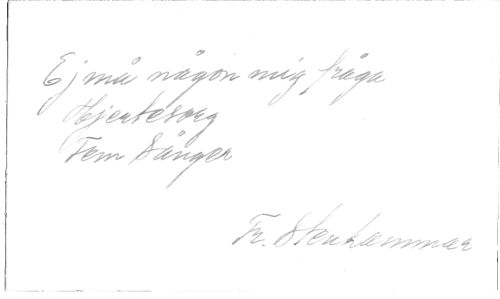 Ej må någon mig fråga
Hjertesorg
Fem Sånger
Fr. Stenhammar